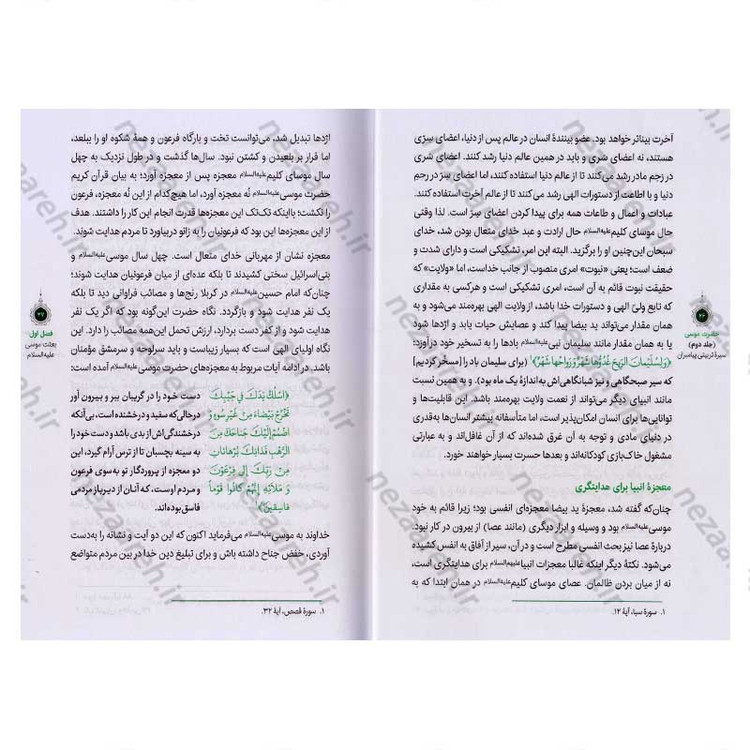 آخرت بیناتر خواهد بود. عضو بینندهٔ انسان در عالم پس از دنیا، اعضای سِرّی
هستند، نه اعضای سَری و باید در همین عالم دنیا رشد کنند. اعضای سَری
در رَحِم مادر رشد می‌کنند تا از عالم دنیا استفاده کنند، اما اعضای سِرّ در رحم
دنیا و با اطاعت از دستورات الهی رشد می‌کنند تا از عالم آخرت استفاده کنند.
عبادات و اعمال و طاعات همه برای پیدا کردن اعضای سِرّ است. لذا وقتی
حال موسای کلیم علیه‌السلام حال ارادت و عبد خدای متعال بودن شد، خدای
سبحان این‌چنین او را برگزید. البته این امر، تشکیکی است و دارای شدت و
ضعف است؛ یعنی «نبوت» امری منصوب از جانب خداست، اما «ولایت» که
حقیقت نبوت قائم به آن است، امری تشکیکی است و هرکسی به مقداری
که تابع ولیّ الهی و دستورات خدا باشد، از ولایت الهی بهره‌مند می‌شود و به
همان مقدار می‌تواند ید بیضا پیدا کند و عصایش حیات یابد و اژدها شود
یا به همان مقدار مانند سلیمان نبی علیه‌السلام بادها را به تسخیر خود درآورد؛
﴿وَلِسُلَيْمَانَ الرِّيحَ غُدُوُّهَا شَهْرٌ وَرَوَاحُهَا شَهْرٌ﴾۱ (برای سلیمان باد را [مسخّر کردیم]
که سیر صبحگاهی و نیز شبانگاهی‌اش به اندازهٔ یک ماه بود). و به همین نسبت
مانند انبیای دیگر می‌تواند از نعمت ولایت بهره‌مند باشد. این قابلیت‌ها و
توانایی‌ها برای انسان امکان‌پذیر است، اما متأسفانه بیشتر انسان‌ها به‌قدری
در دنیای مادی و توجه به آن غرق شده‌اند که از آن غافل‌اند و به عبارتی
مشغول خاک‌بازی کودکانه‌اند و بعدها حسرت بسیار خواهند خورد.
معجزهٔ انبیا برای هدایتگری
چنان‌که گفته شد، معجزهٔ ید بیضا معجزه‌ای انفسی بود؛ زیرا قائم به خود
موسی علیه‌السلام بود و وسیله و ابزار دیگری (مانند عصا) از بیرون در کار نبود.
دربارهٔ عصا نیز بحث انفسی مطرح است و در آن، سیر از آفاق به انفس کشیده
می‌شود. نکتهٔ دیگر اینکه غالبا معجزات انبیا علیهم‌السلام برای هدایتگری است،
نه از میان بردن ظالمان. عصای موسای کلیم علیه‌السلام در همان ابتدا که به
۱. سورهٔ سبا، آیهٔ ۱۲.
۳۶
حضرت موسی
(جلد دوم)
سیرهٔ تربیتی پیامبران
اژدها تبدیل شد، می‌توانست تخت و بارگاه فرعون و همهٔ شکوه او را ببلعد،
اما قرار بر بلعیدن و کشتن نبود. سال‌ها گذشت و در طول نزدیک به چهل
سال موسای کلیم علیه‌السلام معجزه پس از معجزه آورد؛ به بیان قرآن کریم
حضرت موسی علیه‌السلام نُه معجزه آورد، اما هیچ‌کدام از این نُه معجزه، فرعون
را نکشت؛ بااینکه تک‌تک این معجزه‌ها قدرت انجام این کار را داشتند. هدف
از این معجزه‌ها این بود که فرعونیان را به زانو دربیاورد تا مردم هدایت شوند.
معجزه نشان از مهربانی خدای متعال است. چهل سال موسی علیه‌السلام و
بنی‌اسرائیل سختی کشیدند تا بلکه عده‌ای از میان فرعونیان هدایت شوند؛
چنان‌که امام حسین علیه‌السلام در کربلا رنج‌ها و مصائب فراوانی دید تا بلکه
یک نفر هدایت شود و بازگردد. نگاه حضرت این‌گونه بود که اگر یک نفر
هدایت شود و از کفر دست بردارد، ارزش تحمل این‌همه مصائب را دارد. این
نگاه اولیای الهی است که بسیار زیباست و باید سرلوحه و سرمشق مؤمنان
باشد. در ادامه آیات مربوط به معجزه‌های حضرت موسی علیه‌السلام آمده است:
﴿اسْلُكْ يَدَكَ فِي جَيْبِكَ
تَخْرُجْ بَيْضَاءَ مِنْ غَيْرِ سُوءٍ وَ
اضْمُمْ إِلَيْكَ جَنَاحَكَ مِنَ
الرَّهْبِ فَذَانِكَ بُرْهَانَانِ
مِنْ رَبِّكَ إِلَى فِرْعَوْنَ
وَ مَلَئِهِ إِنَّهُمْ كَانُوا قَوْمًا
فَاسِقِينَ﴾۱
دست خود را در گریبان ببر و بیرون آور
درحالی‌که سفید و درخشنده است، بی‌آنکه
درخشندگی‌اش از بدی باشد و دست خود را
به سینه بچسبان تا از ترس آرام گیرد، این
دو معجزه از پروردگار تو به‌سوی فرعون
و مردم اوست، که آنان از دیرباز مردمی
فاسق بوده‌اند.
خداوند به موسی علیه‌السلام می‌فرماید اکنون که این دو آیت و نشانه را به‌دست
آوردی، خفض جناح داشته باش و برای تبلیغ دین خدا در بین مردم متواضع
۱. سورهٔ قصص، آیهٔ ۳۲.
۳۷
فصل اول
بعثت موسی
علیه‌السلام
nezaareh.ir